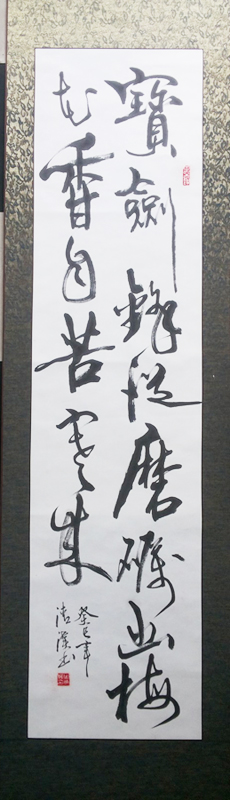 寶劍鋒從磨礪出梅
花香自苦寒來
癸巳年